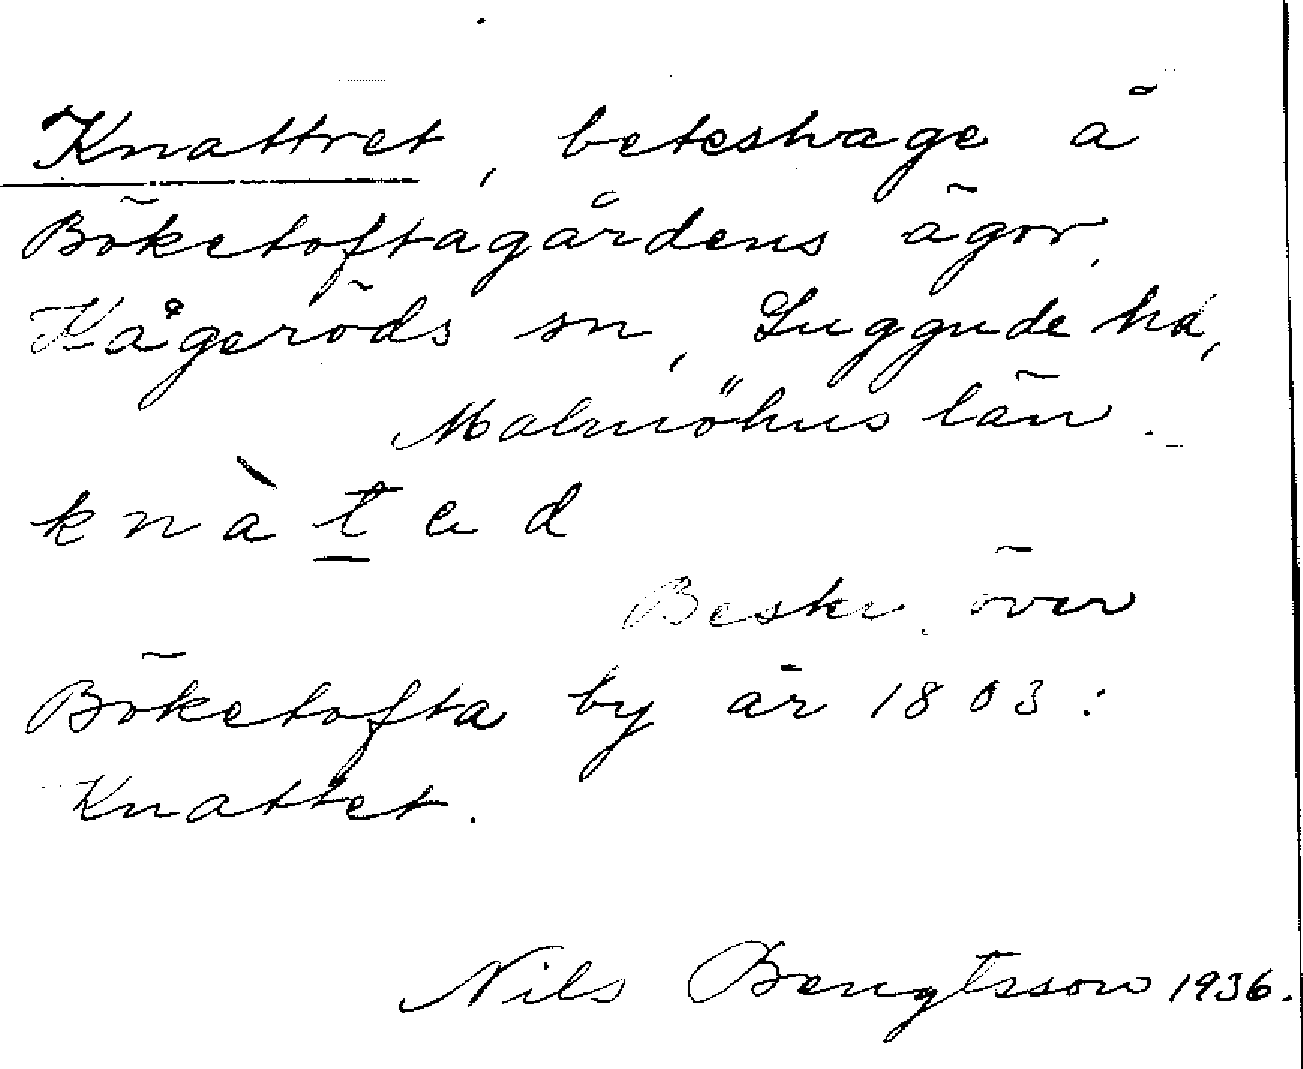 Knattret, beteshage å
Böketoftagårdens ägor,
Kågeröds sn, Luggude hd,
Malmöhus län.
knàted
Beskr. över
Böketofta by år 1803:
Knattet.
Nils Bengtsson 1936.